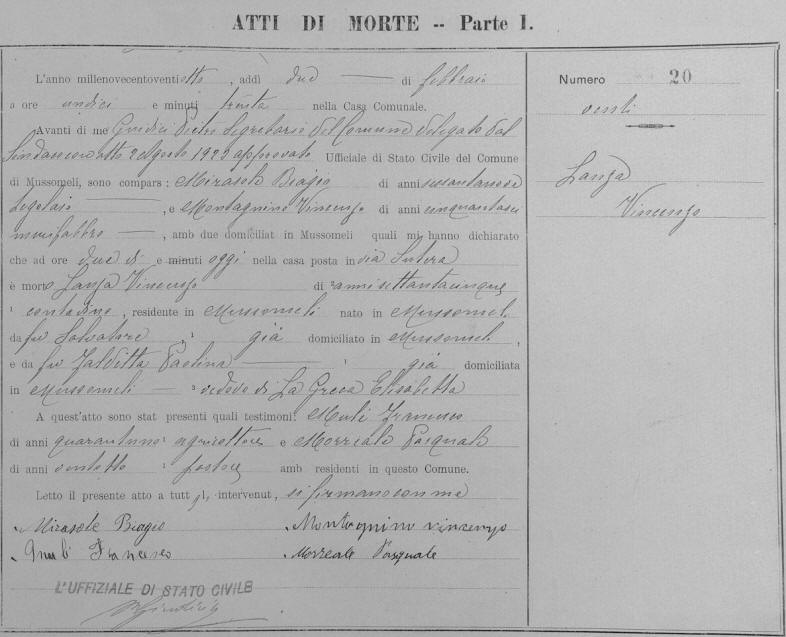 ATTI DI MORTE -- Parte I.
L'anno millenovecentoventiotto, addì due di febbraio
a ore undici e minuti trenta nella Casa Comunale.
Avanti di me Giudici Pietro Segretario del Comune delegato dal
Sindaco con atto 2 Agosto 1923 approvato Ufficiale di Stato Civile del Comune
di Mussomeli, sono compars: Mirasole Biagio di anni sessantanove
, e Montagnino Vincenzo di anni cinquantasei
, amb due domiciliat in Mussomeli quali mi hanno dichiarato
che ad ore due e minuti oggi nella casa posta in via Sutera
è morto Lanza Vincenzo di anni settantacinque
contadino, residente in Mussomeli nato in Mussomeli
da fu Salvatore già domiciliato in Mussomeli,
e da fu Valditta Paolina già domiciliata
in Mussomeli vedovo di La Greca Elisabetta
A quest'atto sono stat presenti quali testimoni: Mulè Francesco
di anni quarantuno agricoltore e Morreale Pasquale
di anni ventotto pastore amb residenti in questo Comune.
Letto il presente atto a tutt gl, intervenut, si firmano con me
Mirasole Biagio Montagnino Vincenzo
Mulè Francesco Morreale Pasquale
L'UFFIZIALE DI STATO CIVILE
Numero 20
venti
Lanza
Vincenzo